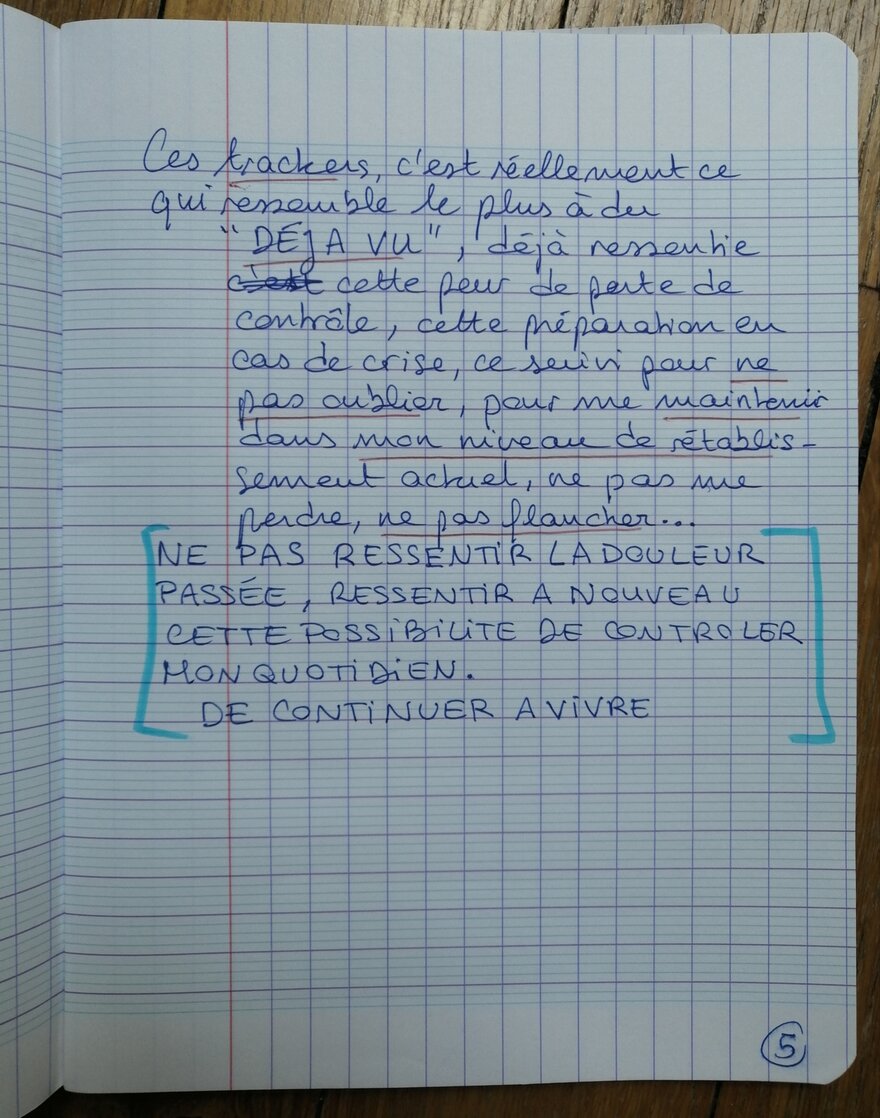 Ces trackers, c'est réellement ce
qui ressemble le plus à du
"DÉJA VU", déjà ressentie
c'est cette peur de perte de
contrôle, cette préparation en
cas de crise, ce suivi pour ne
pas oublier, pour me maintenir
dans mon niveau de rétablis-
sement actuel, ne pas me
perdre, ne pas flancher...
NE PAS RESSENTIR LA DOULEUR
PASSÉE, RESSENTIR A NOUVEAU
CETTE POSSIBILITE DE CONTROLER
MON QUOTIDIEN.
DE CONTINUER A VIVRE
5